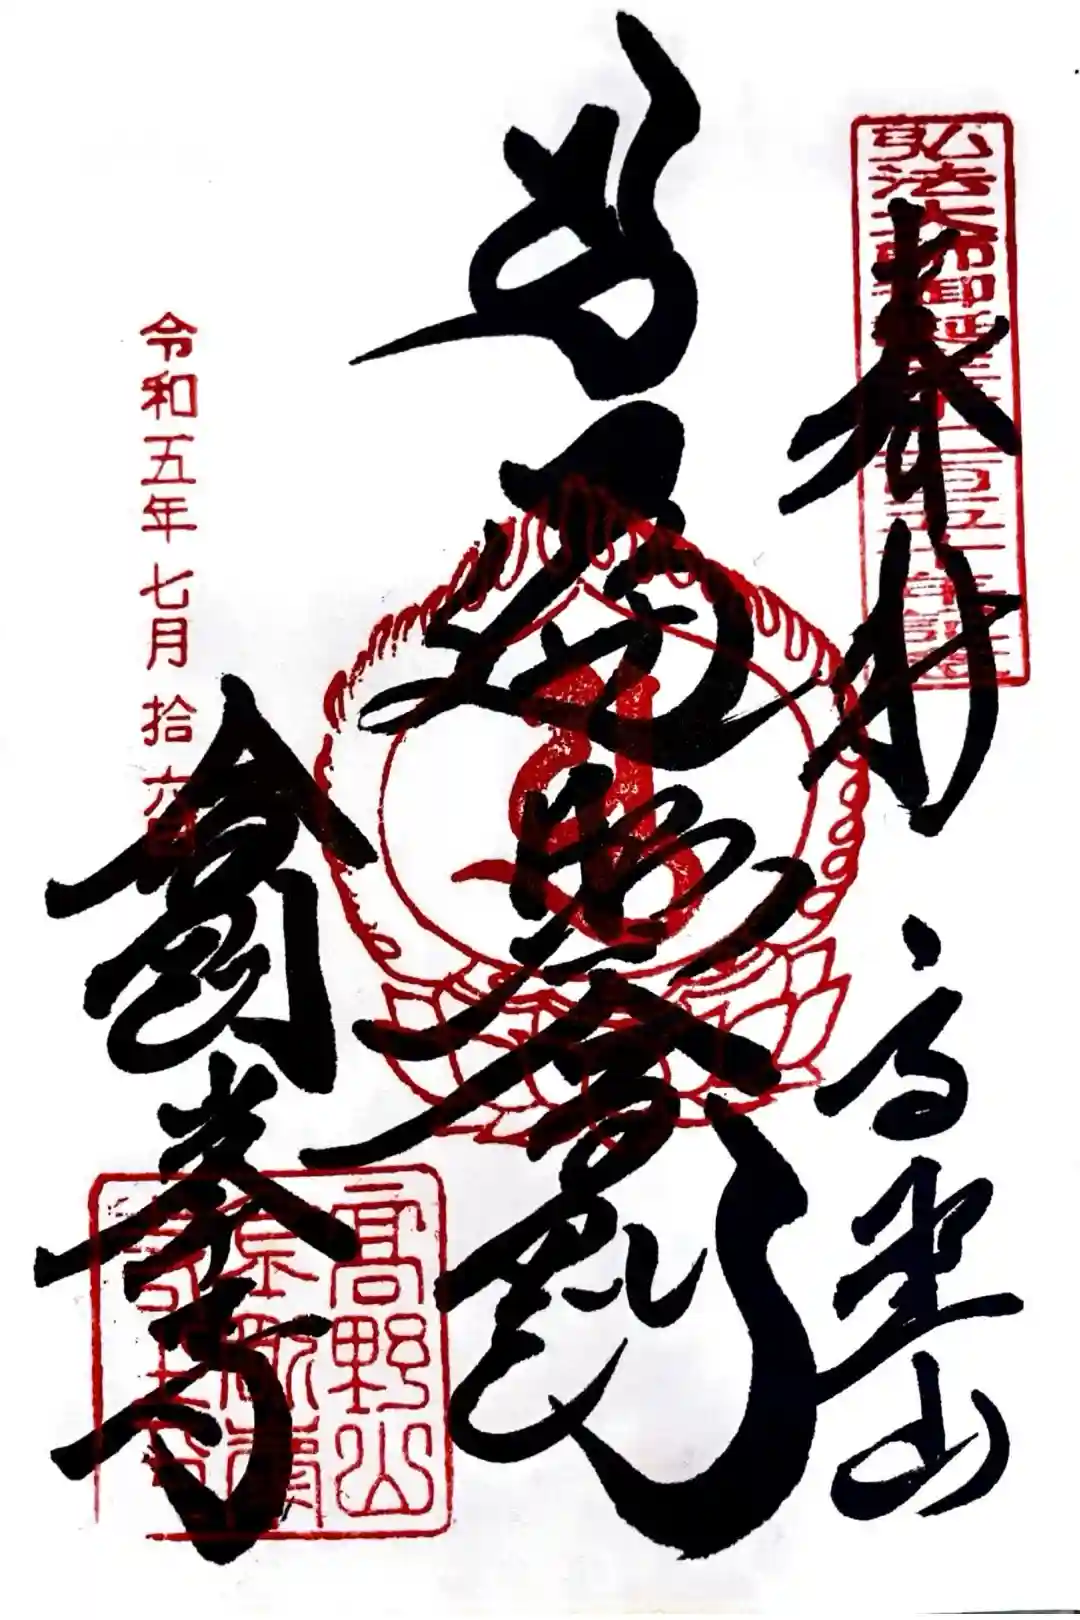 弘法大師御誕生千二百五十年記念
奉拝 高野山
遍照金剛
令和五年七月拾六日
金剛峯寺
高野山